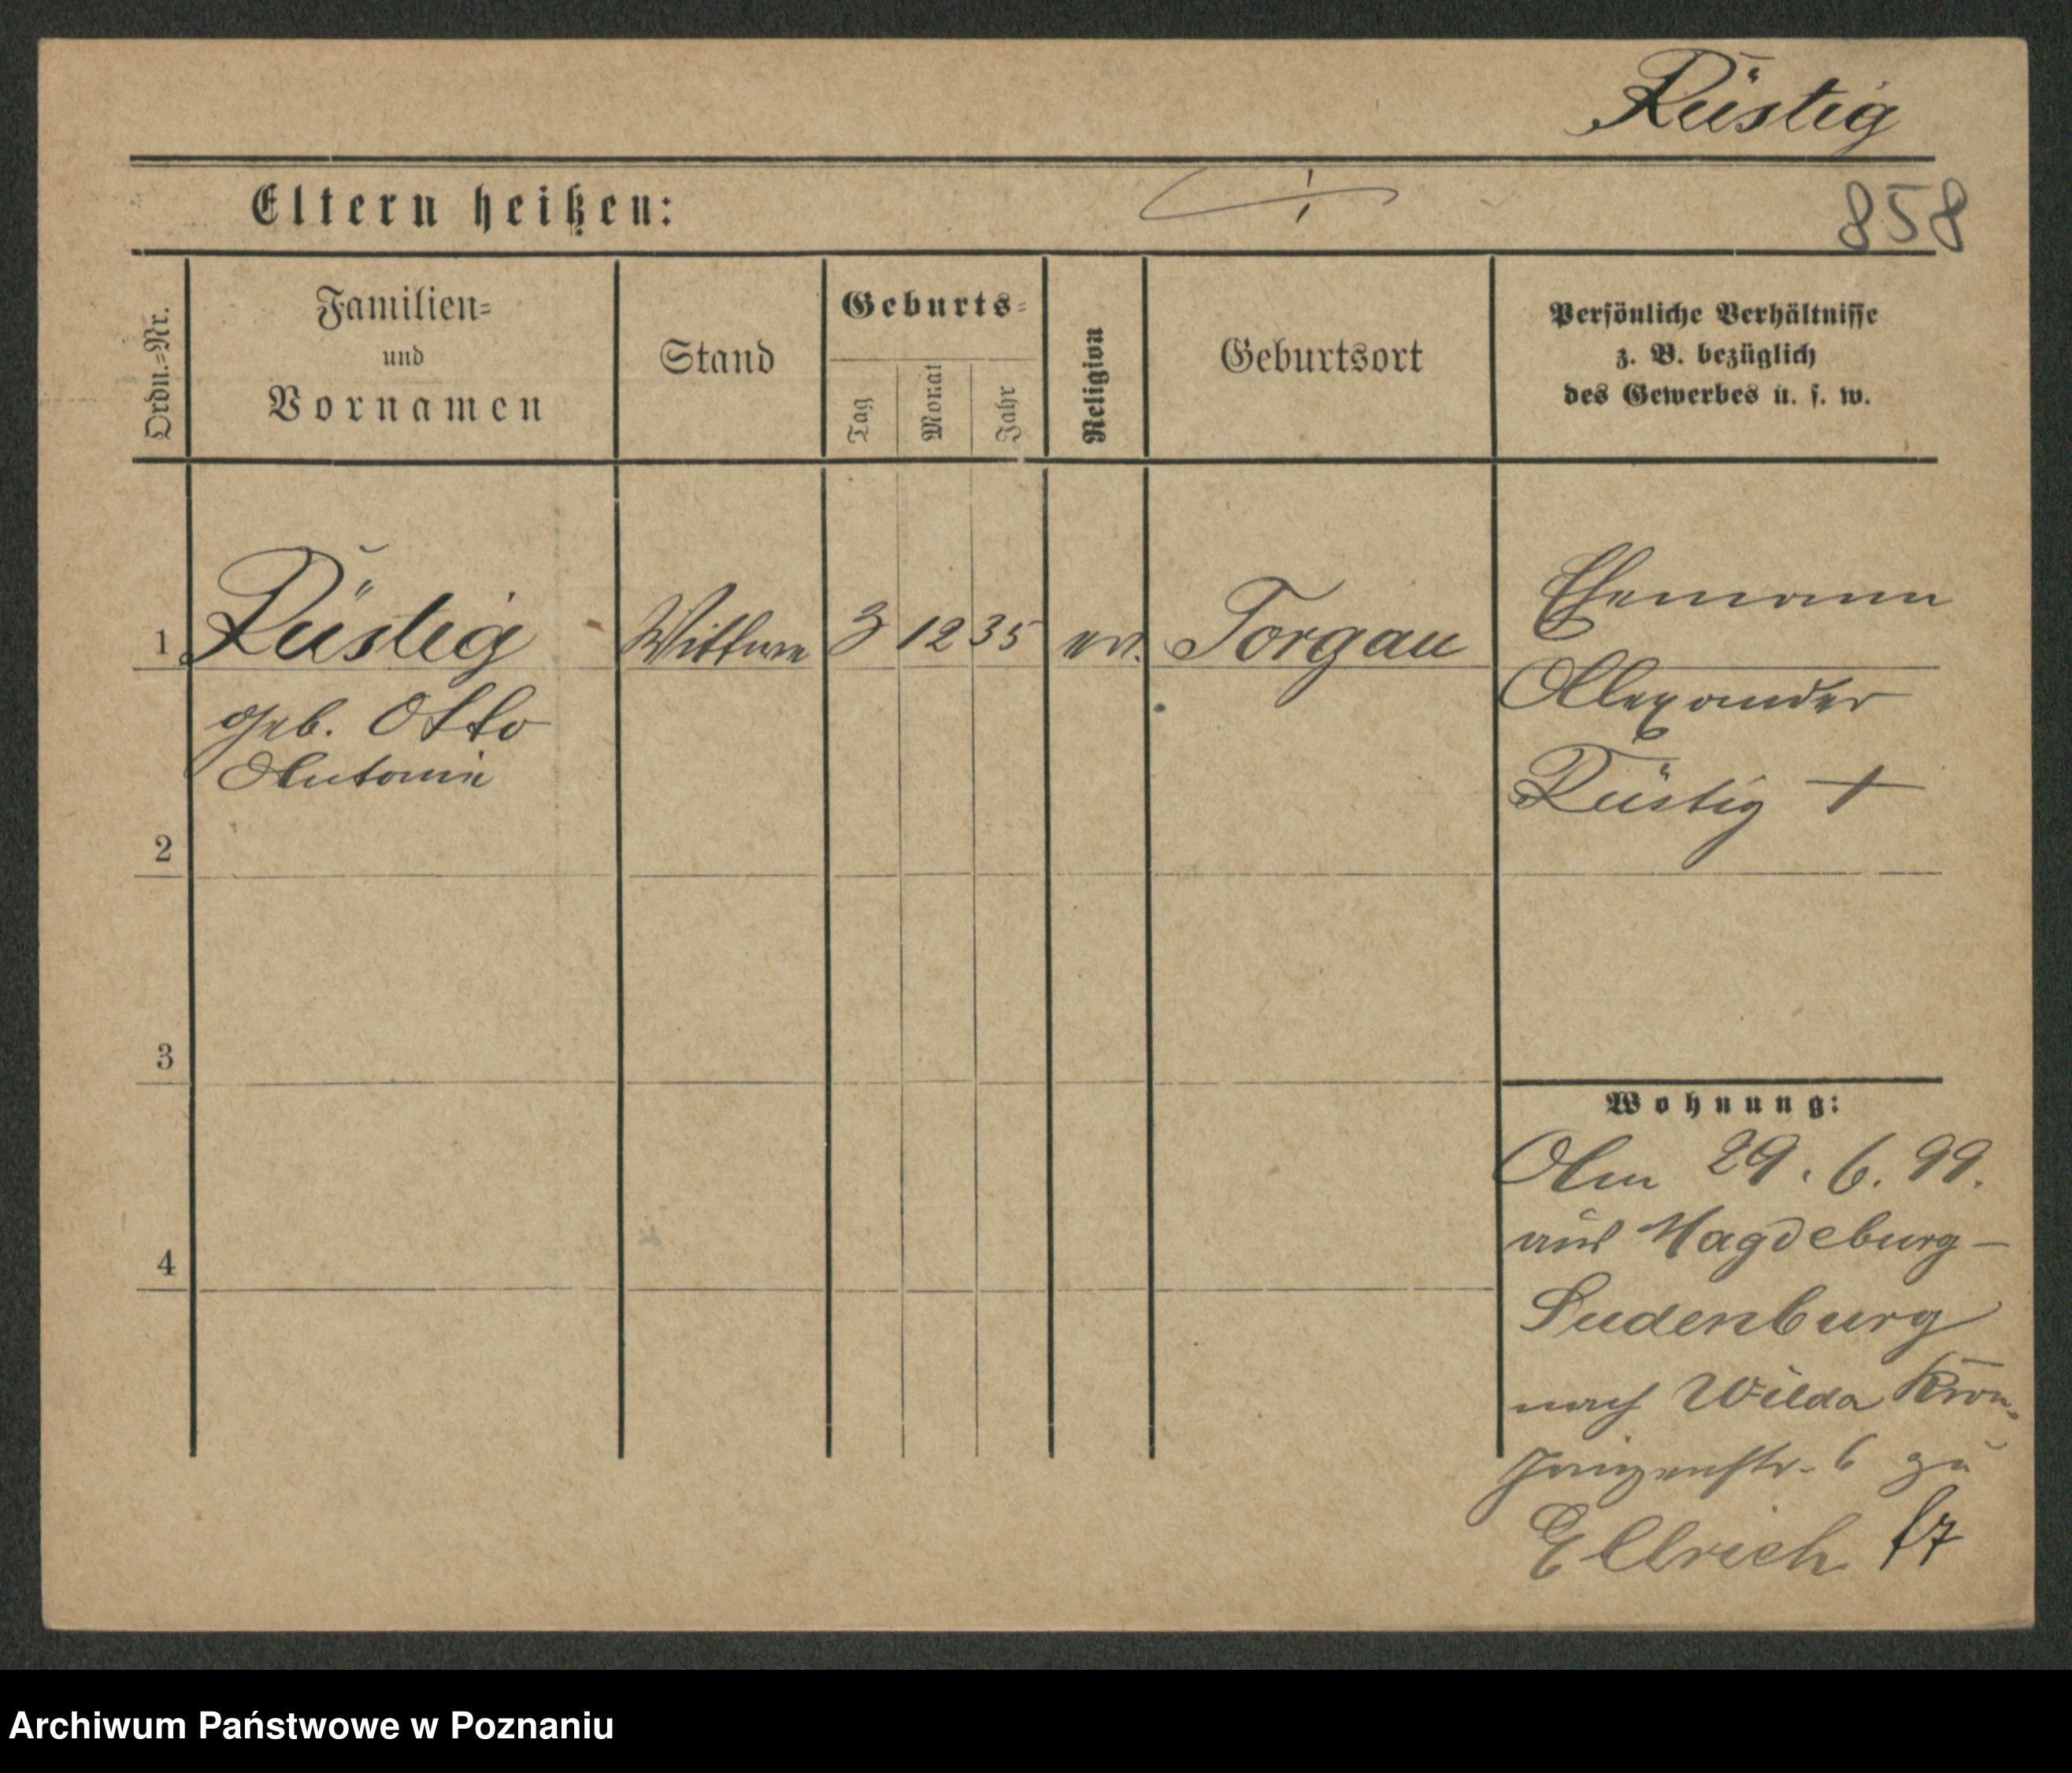 Rüstig
Eltern heißen: ./.
858
Ordn.=Nr.
Familien=
und
Vornamen
Stand
Geburts=
Tag
Monat
Jahr
Religion
Geburtsort
Persönliche Verhältnisse
z. B. bezüglich
des Gewerbes u. s. w.
1 Rüstig Wittwe 3 12 35 ev. Torgau Ehemann
geb. Otto Alexander
Antonie Rüstig +
2
3
Wohnung:
Am 29. 6. 99.
aus Magdeburg-
4
Sudenburg
nach Wilda Kron-
prinzenstr. 6 zu
Ellrich
Archiwum Państwowe w Poznaniu